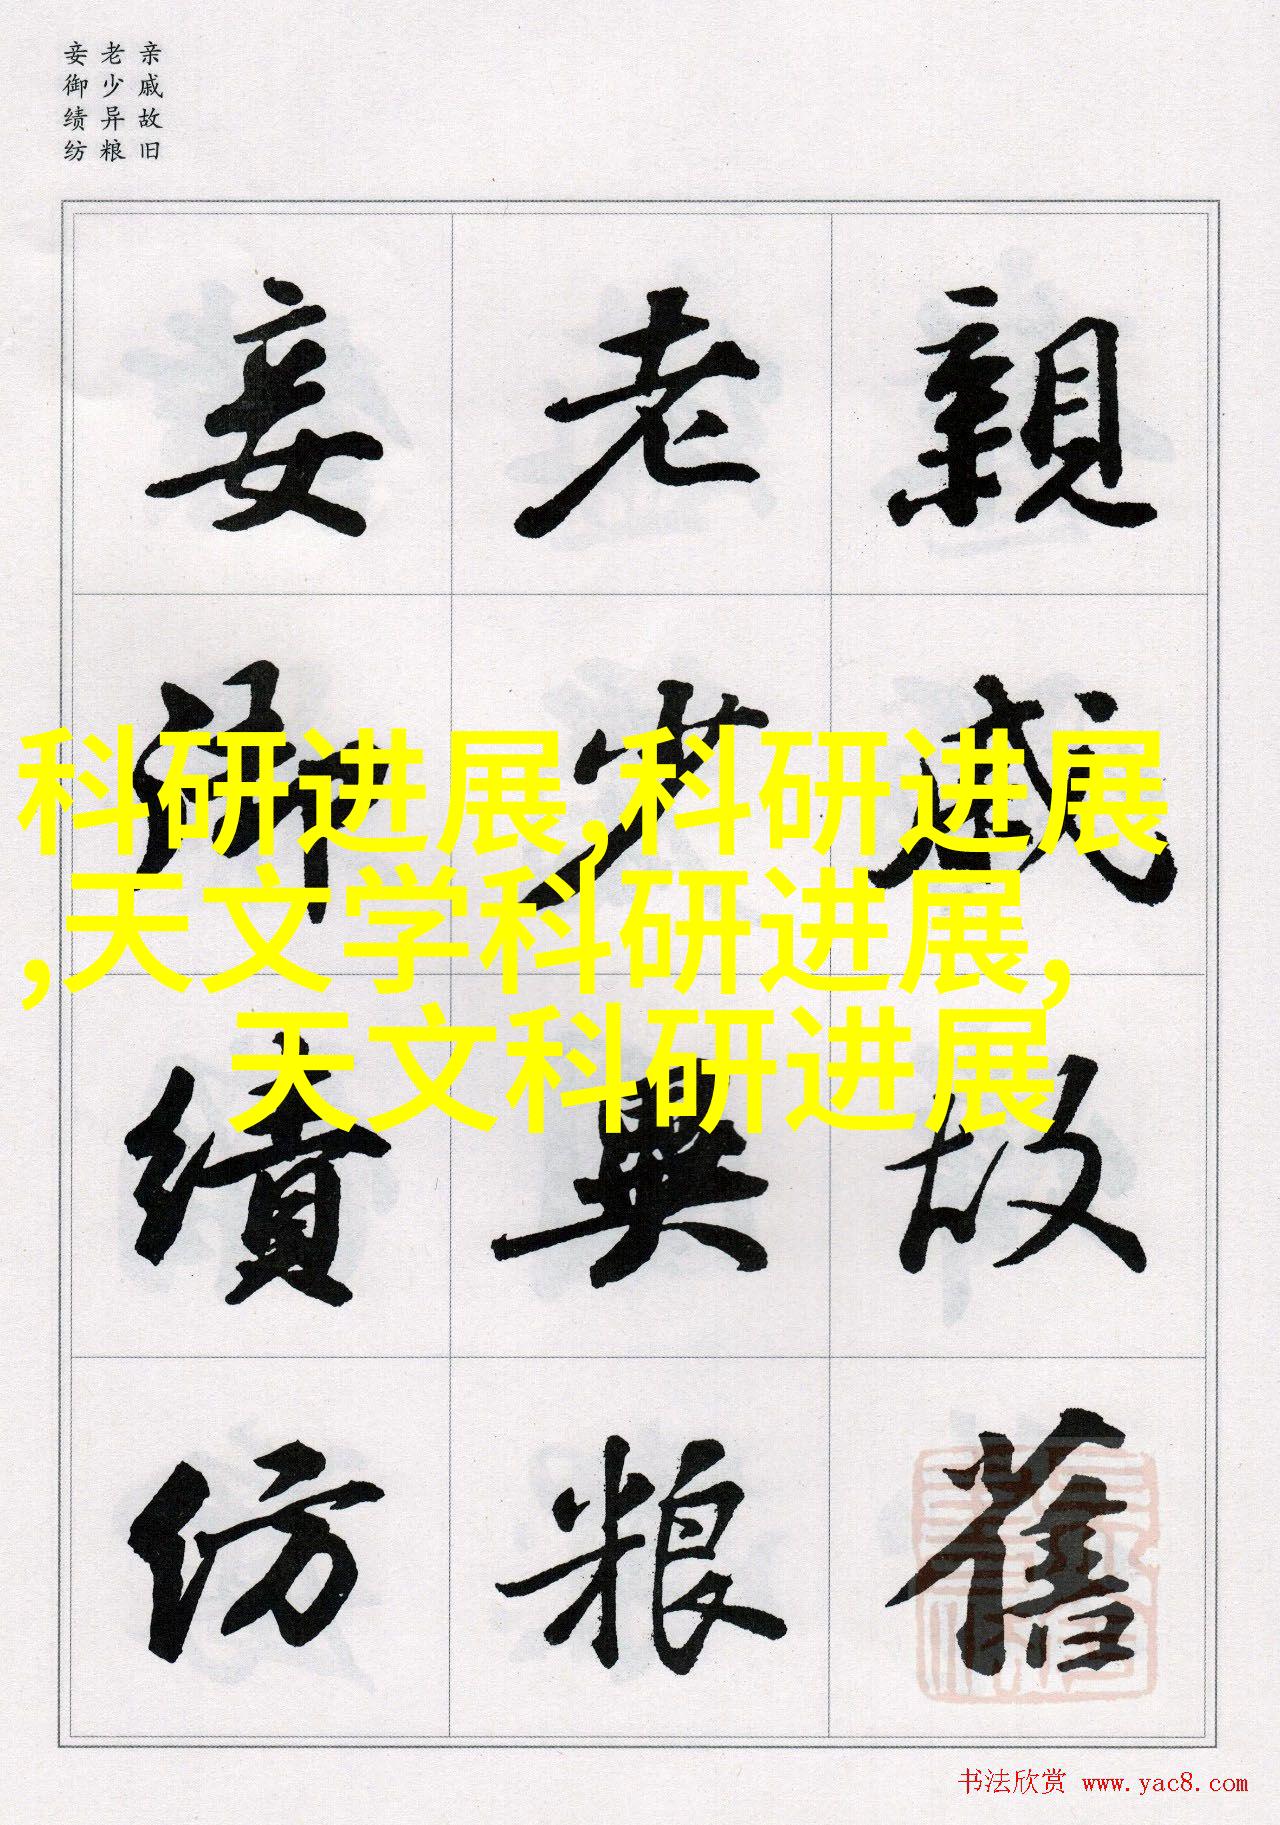 亲戚故旧
老少异粮
妾御绩纺
親戚故舊
老少異粮
妾御績紡
科研进展,科研进展
,天文学科研进展,
天文科研进展
书法欣赏 www.yac8.com